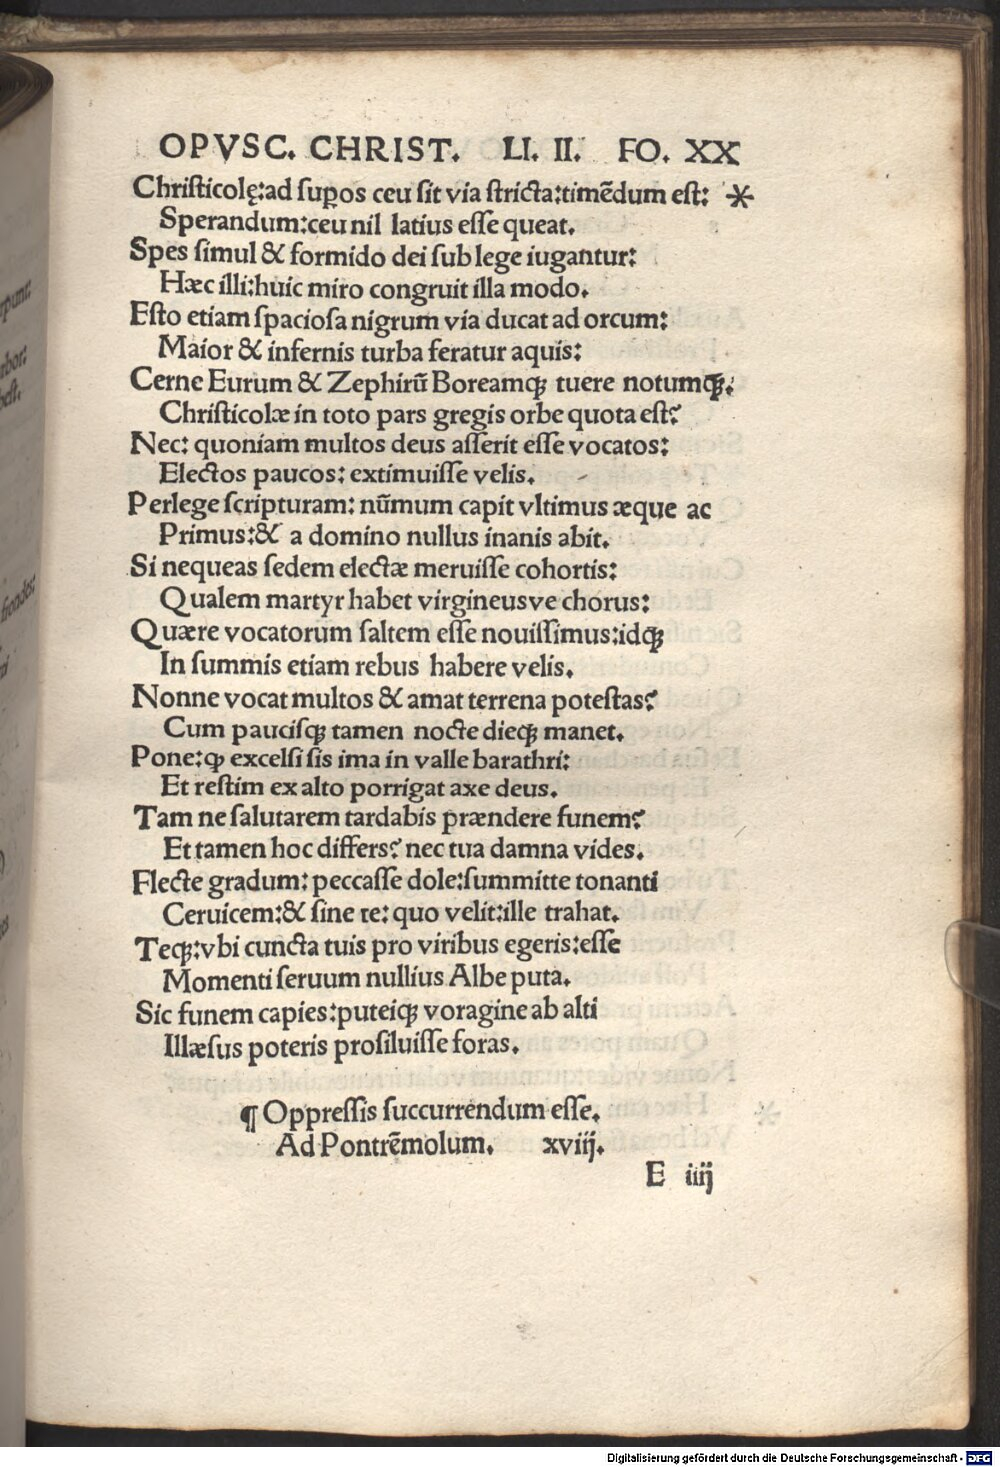 OPVSC. CHRIST. LI. II. FO. XX
Christicolę:ad suꝑos ceu sit via stricta:timẽdum est: *
Sperandum:ceu nil latius esse queat.
Spes simul & formido dei sub lege iugantur:
Hæc illi:huic miro congruit illa modo.
Esto etiam spaciosa nigrum via ducat ad orcum:
Maior & infernis turba feratur aquis:
Cerne Eurum & Zephirũ Boreamqꝫ tuere notumqꝫ.
Christicolæ in toto pars gregis orbe quota est?
Nec: quoniam multos deus asserit esse vocatos:
Electos paucos: extimuisse velis.
Perlege scripturam: nũmum capit vltimus æque ac
Primus:& a domino nullus inanis abit.
Si nequeas sedem electæ meruisse cohortis:
Qualem martyr habet virgineusve chorus:
Quære vocatorum saltem esse nouissimus:idqꝫ
In summis etiam rebus habere velis.
Nonne vocat multos & amat terrena potestas?
Cum paucisqꝫ tamen nocte dieqꝫ manet.
Pone:ꝙ excelsi sis ima in valle barathri:
Et restim ex alto porrigat axe deus.
Tam ne salutarem tardabis prændere funem?
Et tamen hoc differs? nec tua damna vides.
Flecte gradum: peccasse dole:summitte tonanti
Ceruicem:& sine te: quo velit:ille trahat.
Teqꝫ:vbi cuncta tuis pro viribus egeris:esse
Momenti seruum nullius Albe puta.
Sic funem capies:puteiqꝫ voragine ab alti
Illæsus poteris prosiluisse foras.
¶ Oppressis succurrendum esse.
Ad Pontrẽmolum. xviij.
E iiij
Digitalisierung gefördert durch die Deutsche Forschungsgemeinschaft - DFG